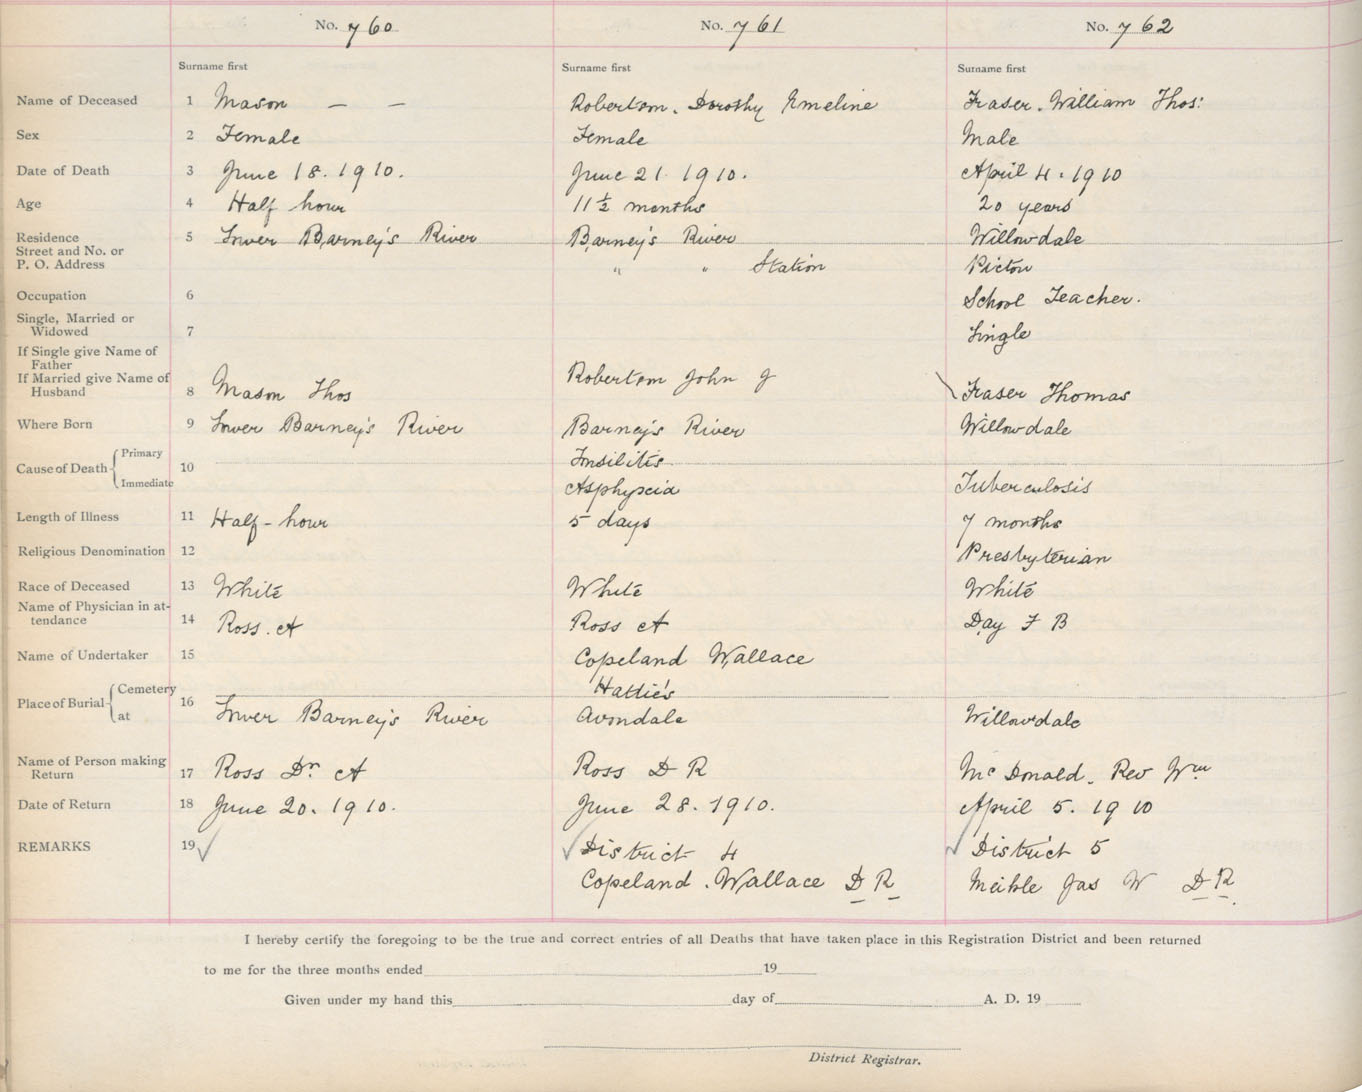 No. 760 No. 761 No. 762
Surname first Surname first Surname first
Name of Deceased 1 Mason — — Robertson. Dorothy Emeline Fraser. William Thos:
Sex 2 Female Female Male
Date of Death 3 June 18. 1910. June 21. 1910. April 4. 1910
Age 4 Half hour 11½ months 20 years
Residence 5 Lower Barney's River Barney's River Willowdale
Street and No. or
P. O. Address " " Station Pictou
Occupation 6 School Teacher.
Single, Married or
Widowed 7 Single
If Single give Name of
Father
If Married give Name of
Husband 8 Mason Thos Robertson John J Fraser Thomas
Where Born 9 Lower Barney's River Barney's River Willowdale
Cause of Death Primary 10 Tonsilitis
Immediate Asphyxia Tuberculosis
Length of Illness 11 Half-hour 5 days 7 months
Religious Denomination 12 Presbyterian
Race of Deceased 13 White White White
Name of Physician in at-
tendance 14 Ross. A Ross A Day F B
Name of Undertaker 15 Copeland Wallace
Place of Burial Cemetery 16 Hattie's
at Lower Barney's River Avondale Willowdale
Name of Person making
Return 17 Ross Dr A Ross D R McDonald. Rev Wm
Date of Return 18 June 20. 1910. June 28. 1910. April 5. 1910
REMARKS 19 ✓ ✓ District 4 ✓ District 5
Copeland. Wallace D R Meikle Jas W D R.
I hereby certify the foregoing to be the true and correct entries of all Deaths that have taken place in this Registration District and been returned
to me for the three months ended 19
Given under my hand this day of A. D. 19
District Registrar.